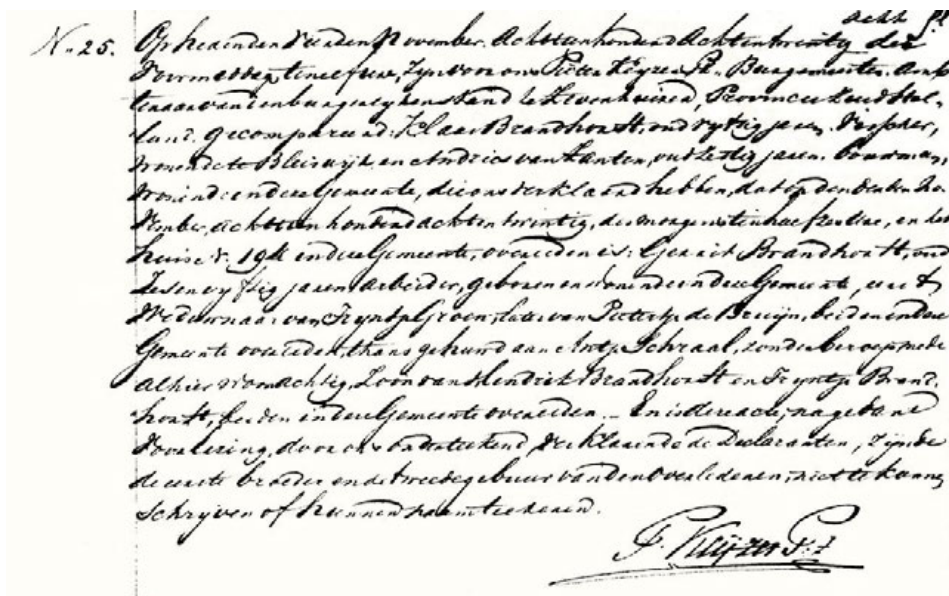 acht
N. 25. Op heden den vierden November Achttienhonderd Achtentwintig des
voormiddags ten elf ure, Zyn voor ons Pieter Keyzer Pz. Burgemeester Amb-
tenaar van den burgerlyken stand te Zevenhuizen, Provincie Zuid Hol-
land. gecompareerd: Klaas Brandhorst, oud vyftig jaren
wonende te Bleiswijk en Andries van Zanten, oud Zestig jaren. Bouwman,
wonende in deze Gemeente, die ons verklaard hebben, dat op den derden No-
vember, achttien honderd achtentwintig, des morgens ten half zes ure, in het
huize N. 194 in deze Gemeente, overleden is: Gerrit Brandhorst, oud
Zesenvyftig jaren arbeider, geboren en wonende in deze Gemeente, eerst
Weduwnaar van Tryntje Groen, later van Pietertje de Bruijn, beiden in deze
Gemeente overleden, thans gehuwd aan Antje Schraal, zonder beroep mede
alhier woonachtig, Zoon van Hendrik Brandhorst en Tryntje Brand-
horst, beiden in deze Gemeente overleden. – En is deze acte, na gedane
voorlezing, door ons onderteekend, verklarende de Declaranten, zynde
de eerste broeder en de tweede gebuur van den overledenen, niet te kunnen
schryven of hunnen naam teekenen.
P. Keijzer Pz